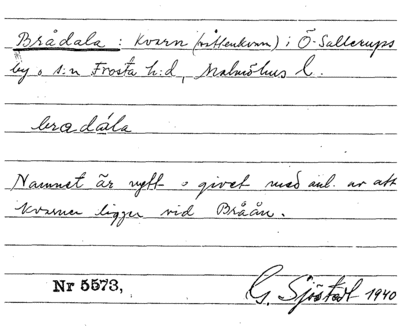 Brådala : kvarn (vattenkvarn) i Ö. Sallerups
by o s:n Frosta h:d, Malmöhus l.
bradála
Namnet är nytt o givet med anl. av att
kvarnen ligger vid Bråån.
Nr 5573, G. Sjöstedt 1940